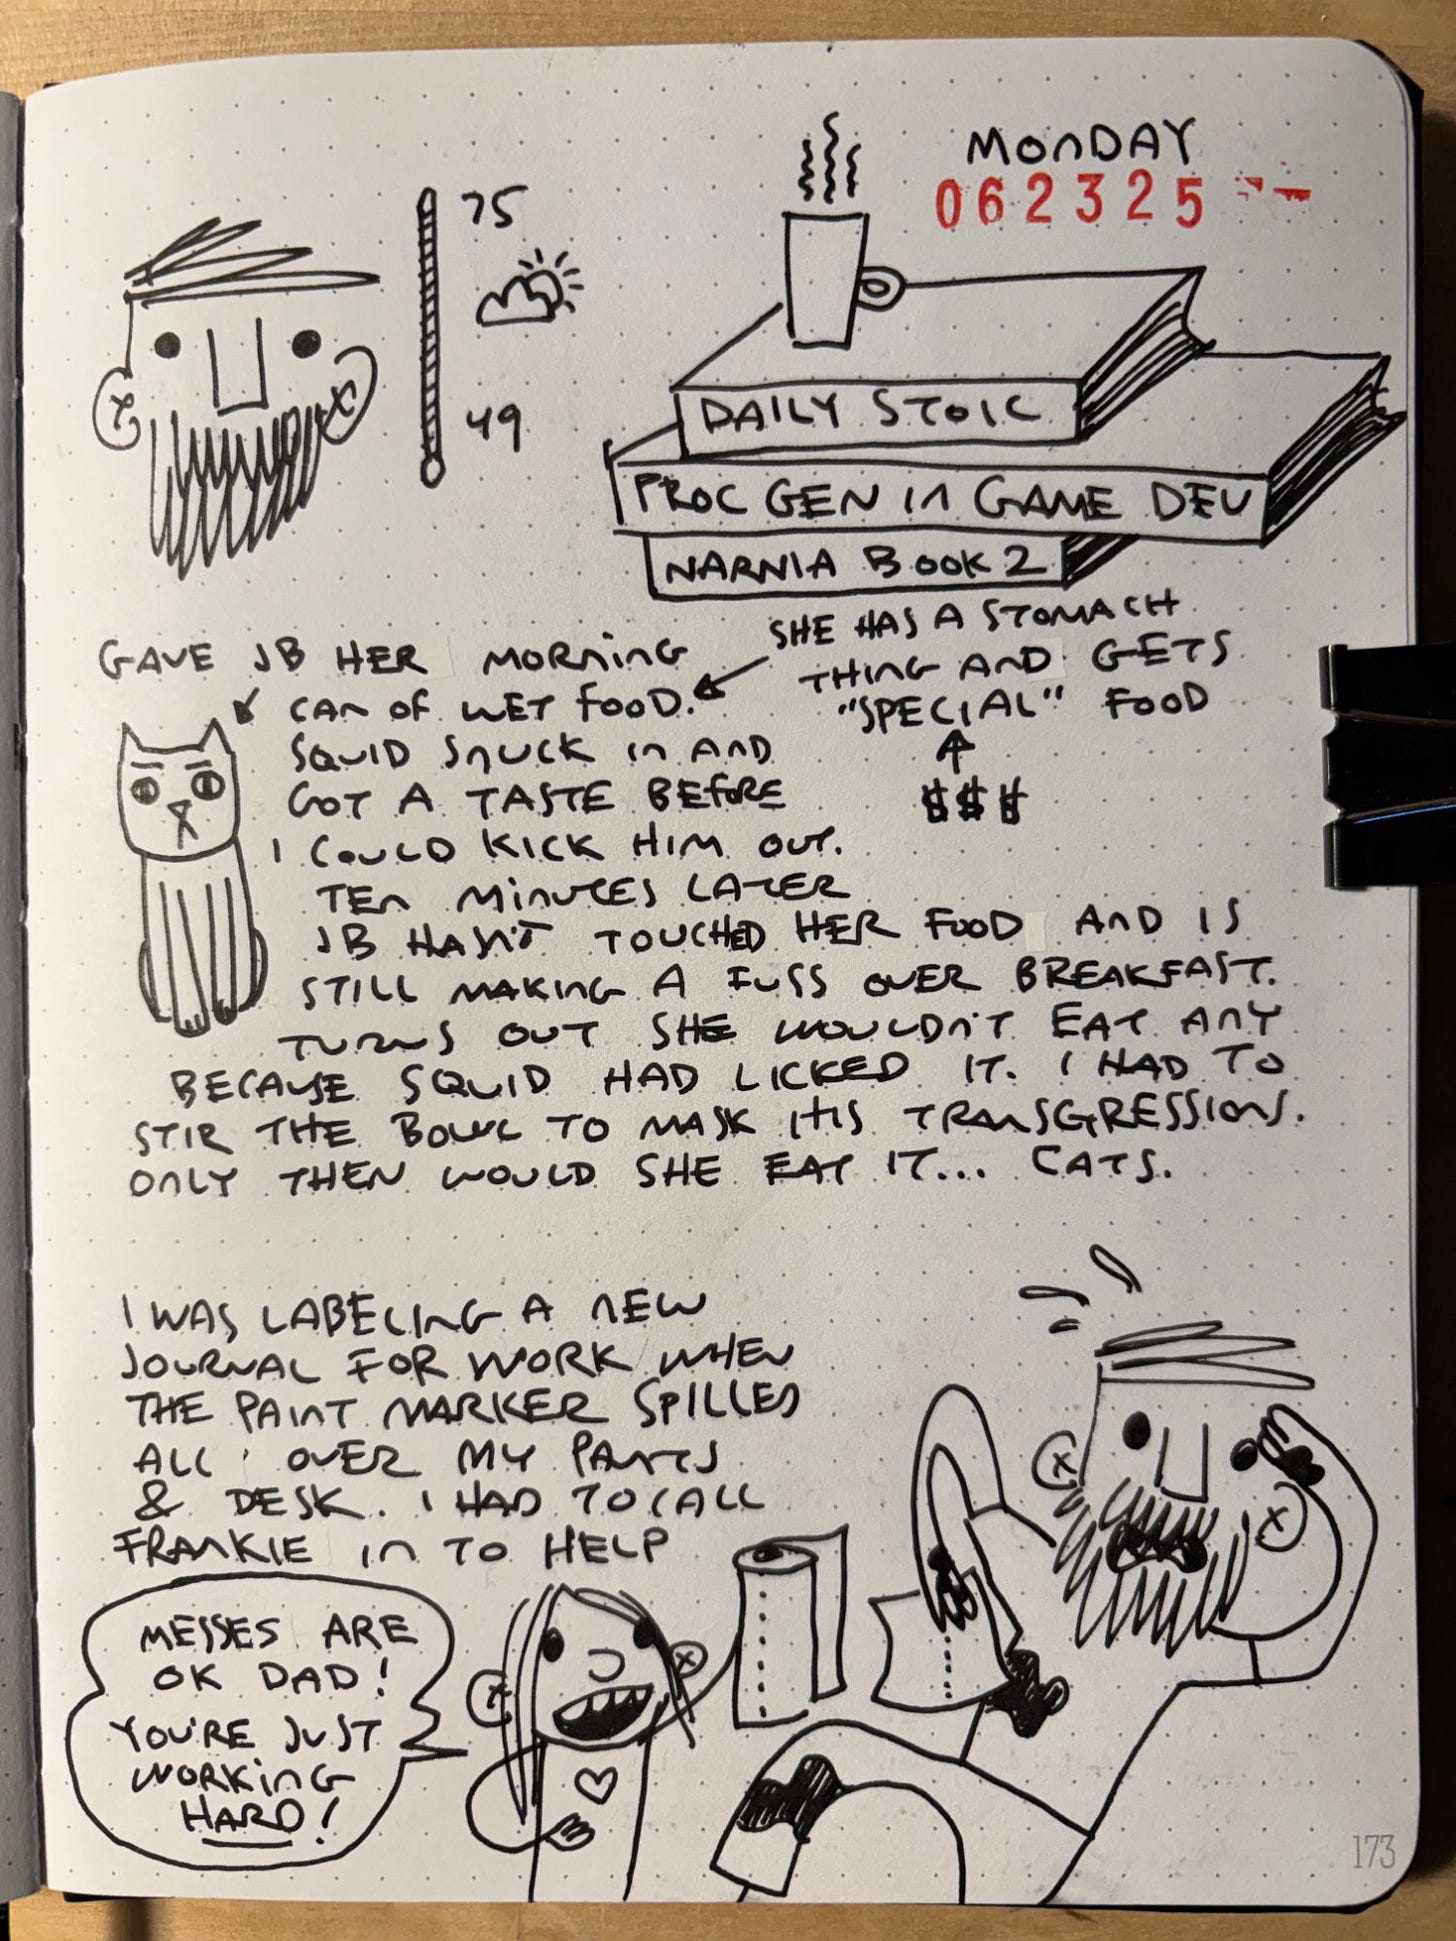 MONDAY
062325
75
49
DAILY STOIC
PROC GEN IN GAME DEV
NARNIA BOOK 2
SHE HAS A STOMACH
THING AND GETS
"SPECIAL" FOOD
$$$
GAVE JB HER MORNING
CAN OF WET FOOD.
SQUID SNUCK IN AND
GOT A TASTE BEFORE
I COULD KICK HIM OUT.
TEN MINUTES LATER
JB HASN'T TOUCHED HER FOOD AND IS
STILL MAKING A FUSS OVER BREAKFAST.
TURNS OUT SHE WOULDN'T EAT ANY
BECAUSE SQUID HAD LICKED IT. I HAD TO
STIR THE BOWL TO MASK HIS TRANSGRESSIONS.
ONLY THEN WOULD SHE EAT IT... CATS.
I WAS LABELING A NEW
JOURNAL FOR WORK WHEN
THE PAINT MARKER SPILLED
ALL OVER MY PANTS
& DESK. I HAD TO CALL
FRANKIE IN TO HELP
MESSES ARE
OK DAD!
YOU'RE JUST
WORKING
HARD!
173